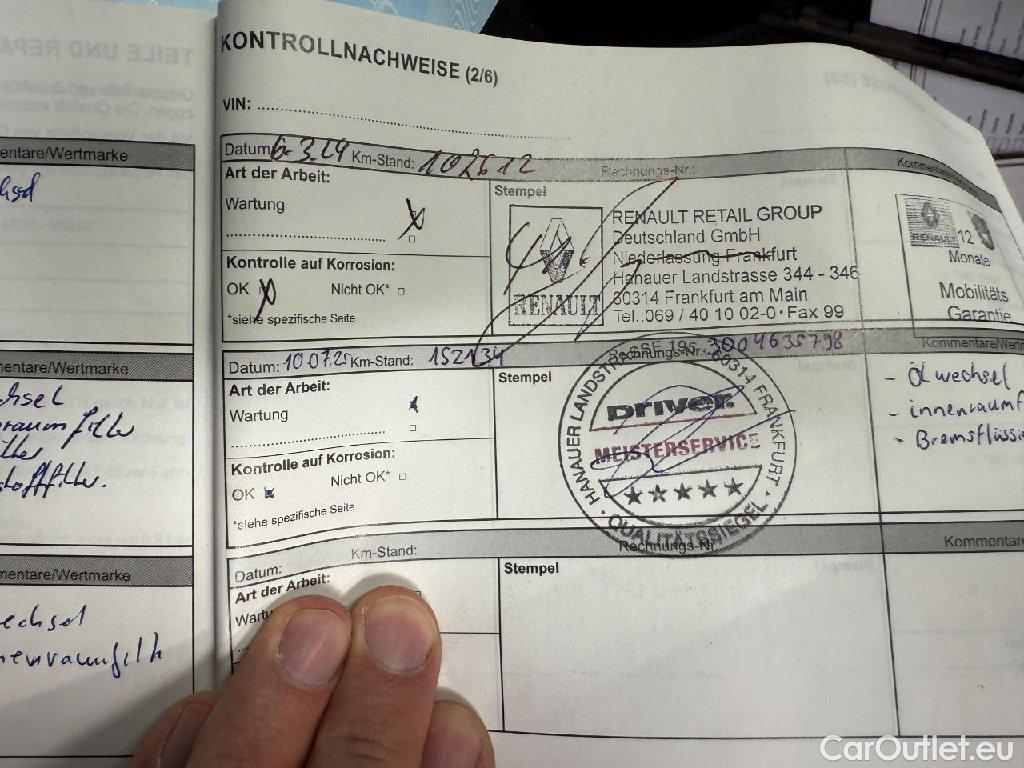 TEILE UND REPA
KONTROLLNACHWEISE (2/6)
VIN:
entare/Wertmarke
Datum: 6.3.24 Km-Stand: 102612 Rechnungs-Nr.:
Art der Arbeit:
Wartung
Kontrolle auf Korrosion:
OK Nicht OK*
*siehe spezifische Seite
Stempel
RENAULT
RENAULT RETAIL GROUP
Deutschland GmbH
Niederlassung Frankfurt
Hanauer Landstrasse 344 - 346
60314 Frankfurt am Main
Tel.:069 / 40 10 02-0 · Fax 99
RENAULT
12
Monate
Mobilitäts
Garantie
entare/Wertmarke
Datum: 10.07.25 Km-Stand: 152134 Rechnungs-Nr.: 3004635798
Art der Arbeit:
Wartung
Kontrolle auf Korrosion:
OK Nicht OK*
*siehe spezifische Seite
Stempel
HANAUER LANDSTRASSE 195 · 60314 FRANKFURT
Driver
MEISTERSERVICE
QUALITÄTSSIEGEL
- Ölwechsel
- innenraumf
- Bremsflüssi
entare/Wertmarke
echsel
Datum: Km-Stand: Rechnungs-Nr
Kommentar
Art der Arbeit:
Stempel
CarOutlet.eu